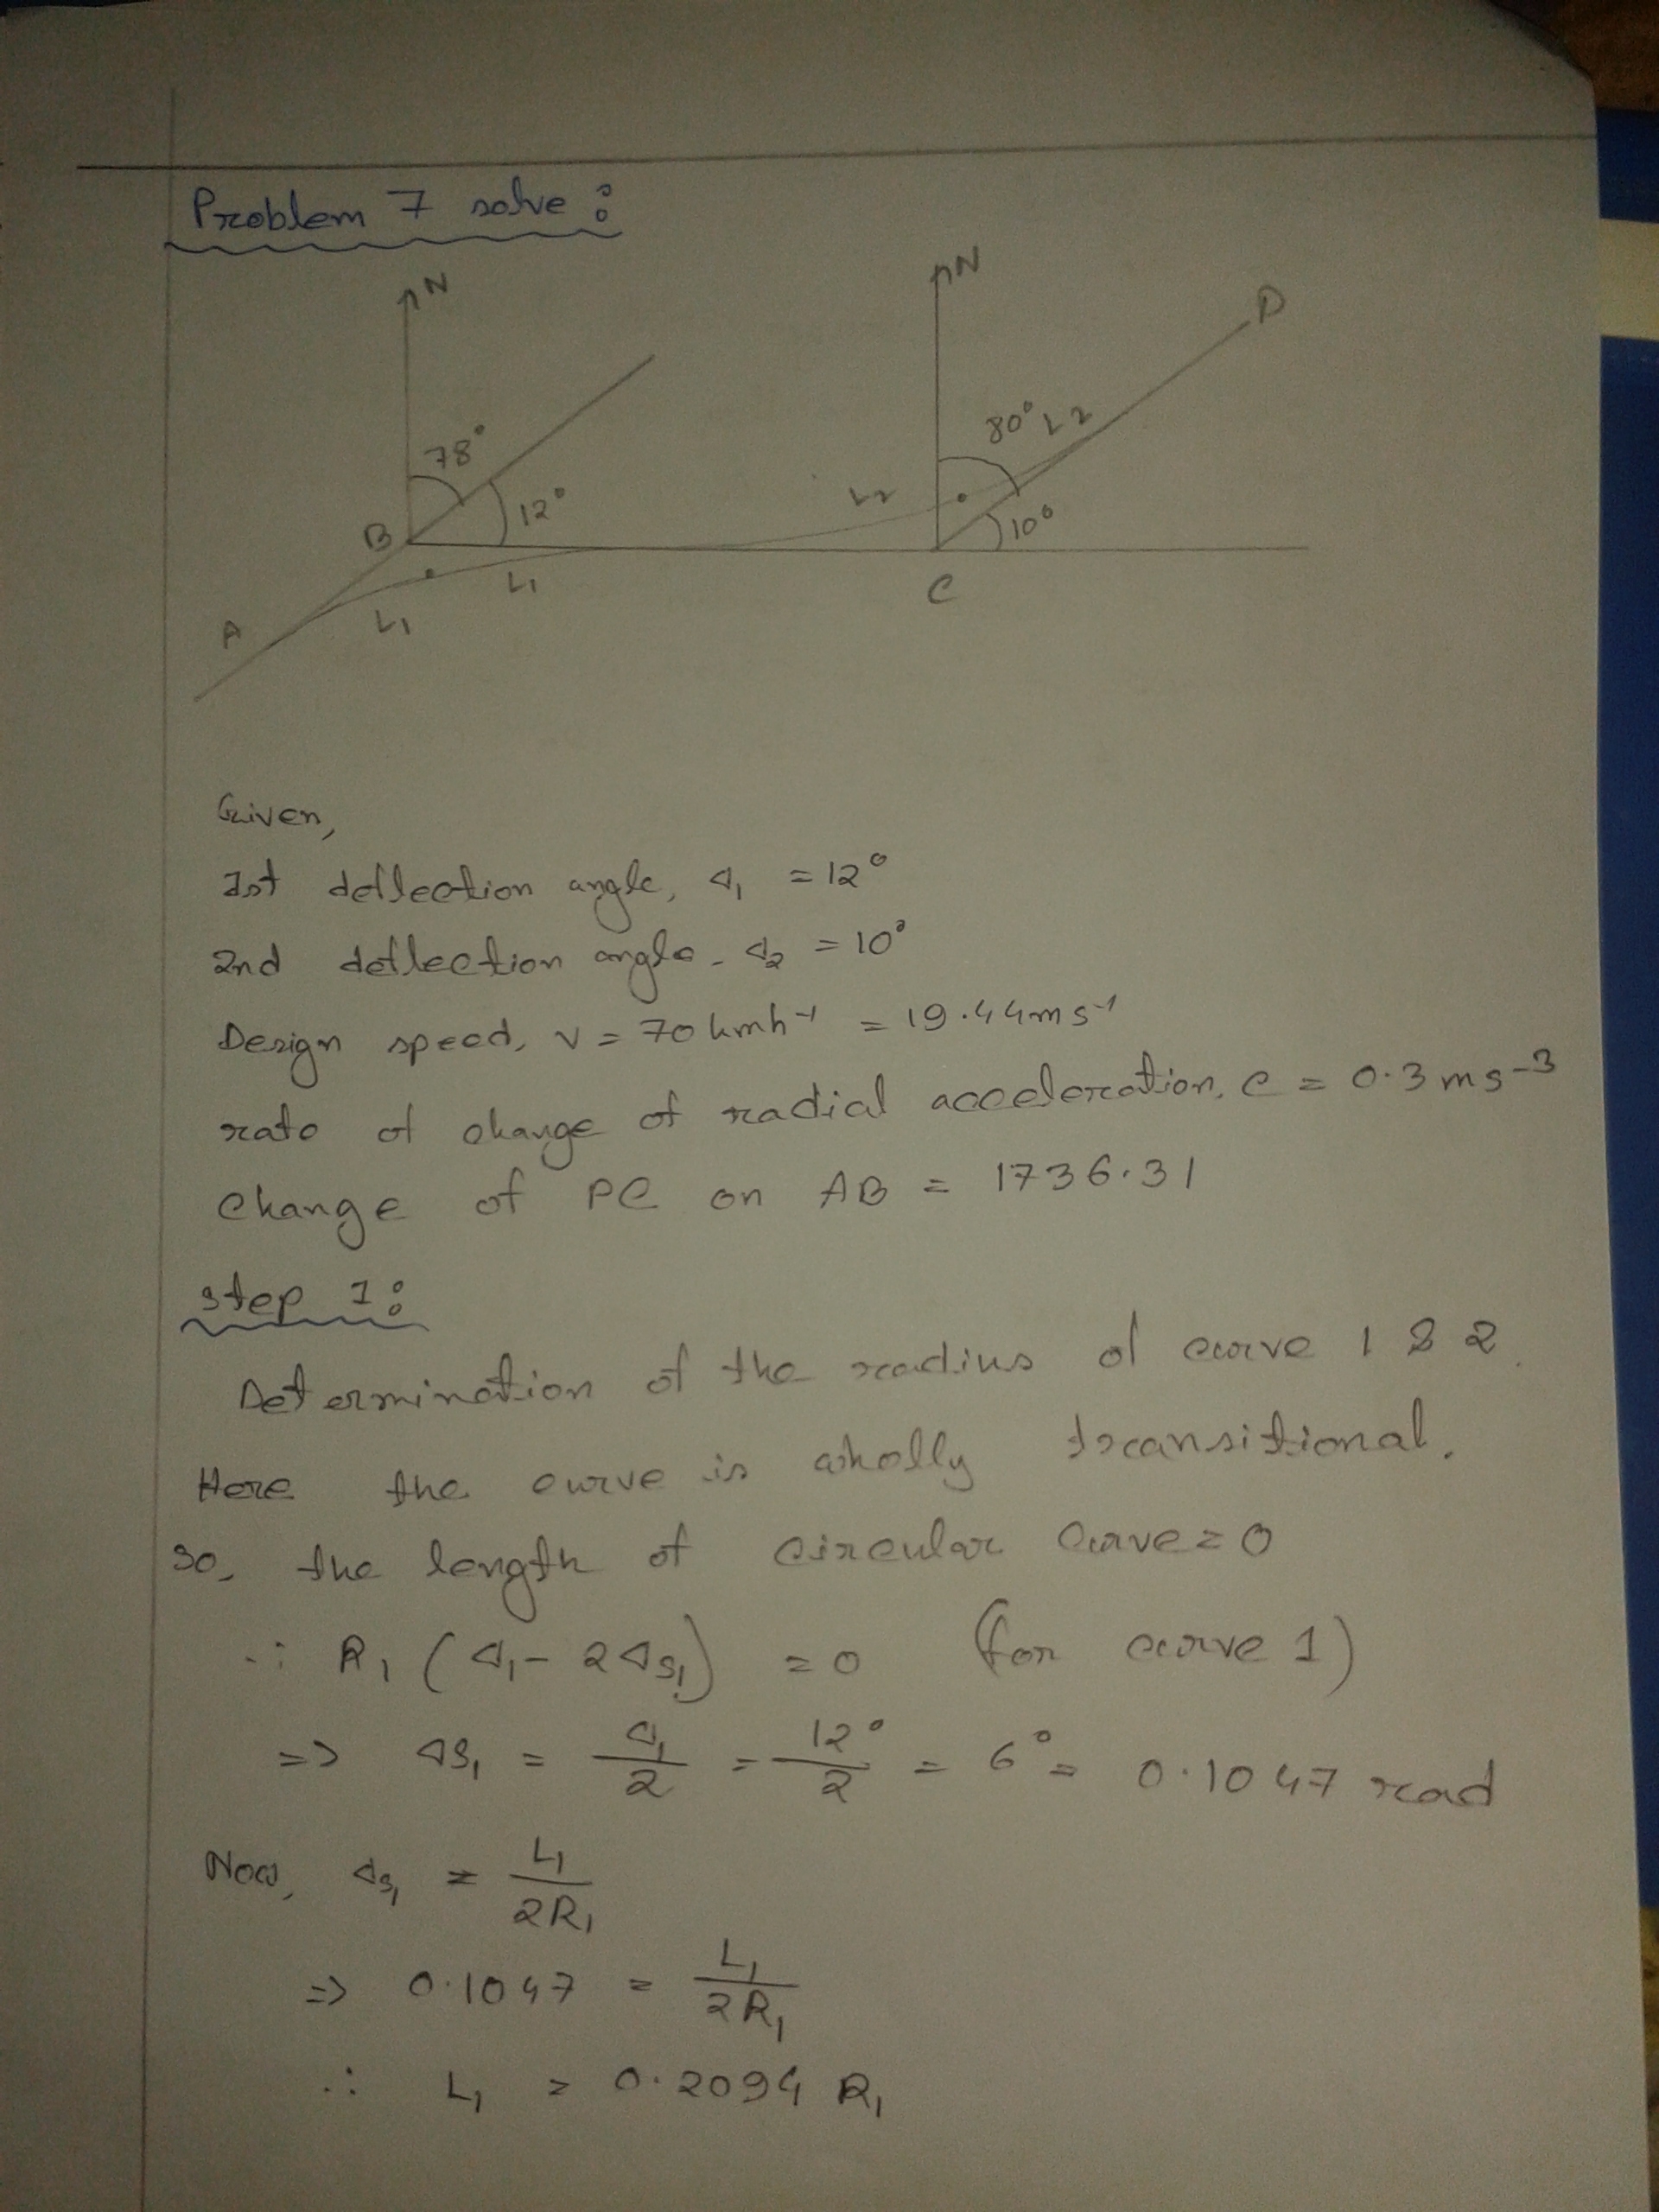 Problem 7 solve :
N
N
D
78°
80°
L2
12°
L2
B
10°
L1
C
L1
A
Given,
1st deflection angle, Δ1 = 12°
2nd deflection angle, Δ2 = 10°
Design speed, v = 70 kmh⁻¹ = 19.44 ms⁻¹
rate of change of radial acceleration, c = 0.3 ms⁻³
Change of PC on AB = 1736.31
Step 1 :
Determination of the radius of curve 1 & 2.
Here the curve is wholly transitional.
So, the length of circular curve = 0
∴ R1 (Δ1 - 2ΔS1) = 0 (for curve 1)
=> ΔS1 = Δ1/2 = 12°/2 = 6° = 0.1047 rad
Now, ΔS1 = L1/2R1
=> 0.1047 = L1/2R1
∴ L1 = 0.2094 R1